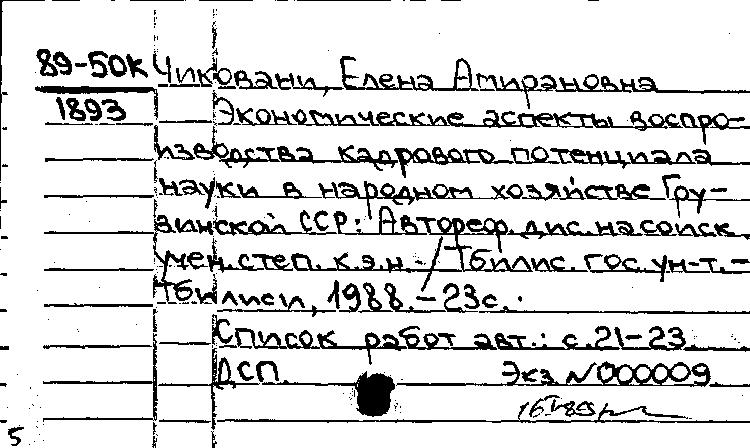 89-50К Чиковани, Елена Амирановна
1893 Экономические аспекты воспро-
изводства кадрового потенциала
науки в народном хозяйстве Гру-
зинской ССР: Автореф. дис. на соиск.
учен. степ. к.э.н. - /Тбилис. гос. ун-т. -
Тбилиси, 1988. - 23с.
Список работ авт.: с. 21-23.
ДСП. Экз N000009.
5